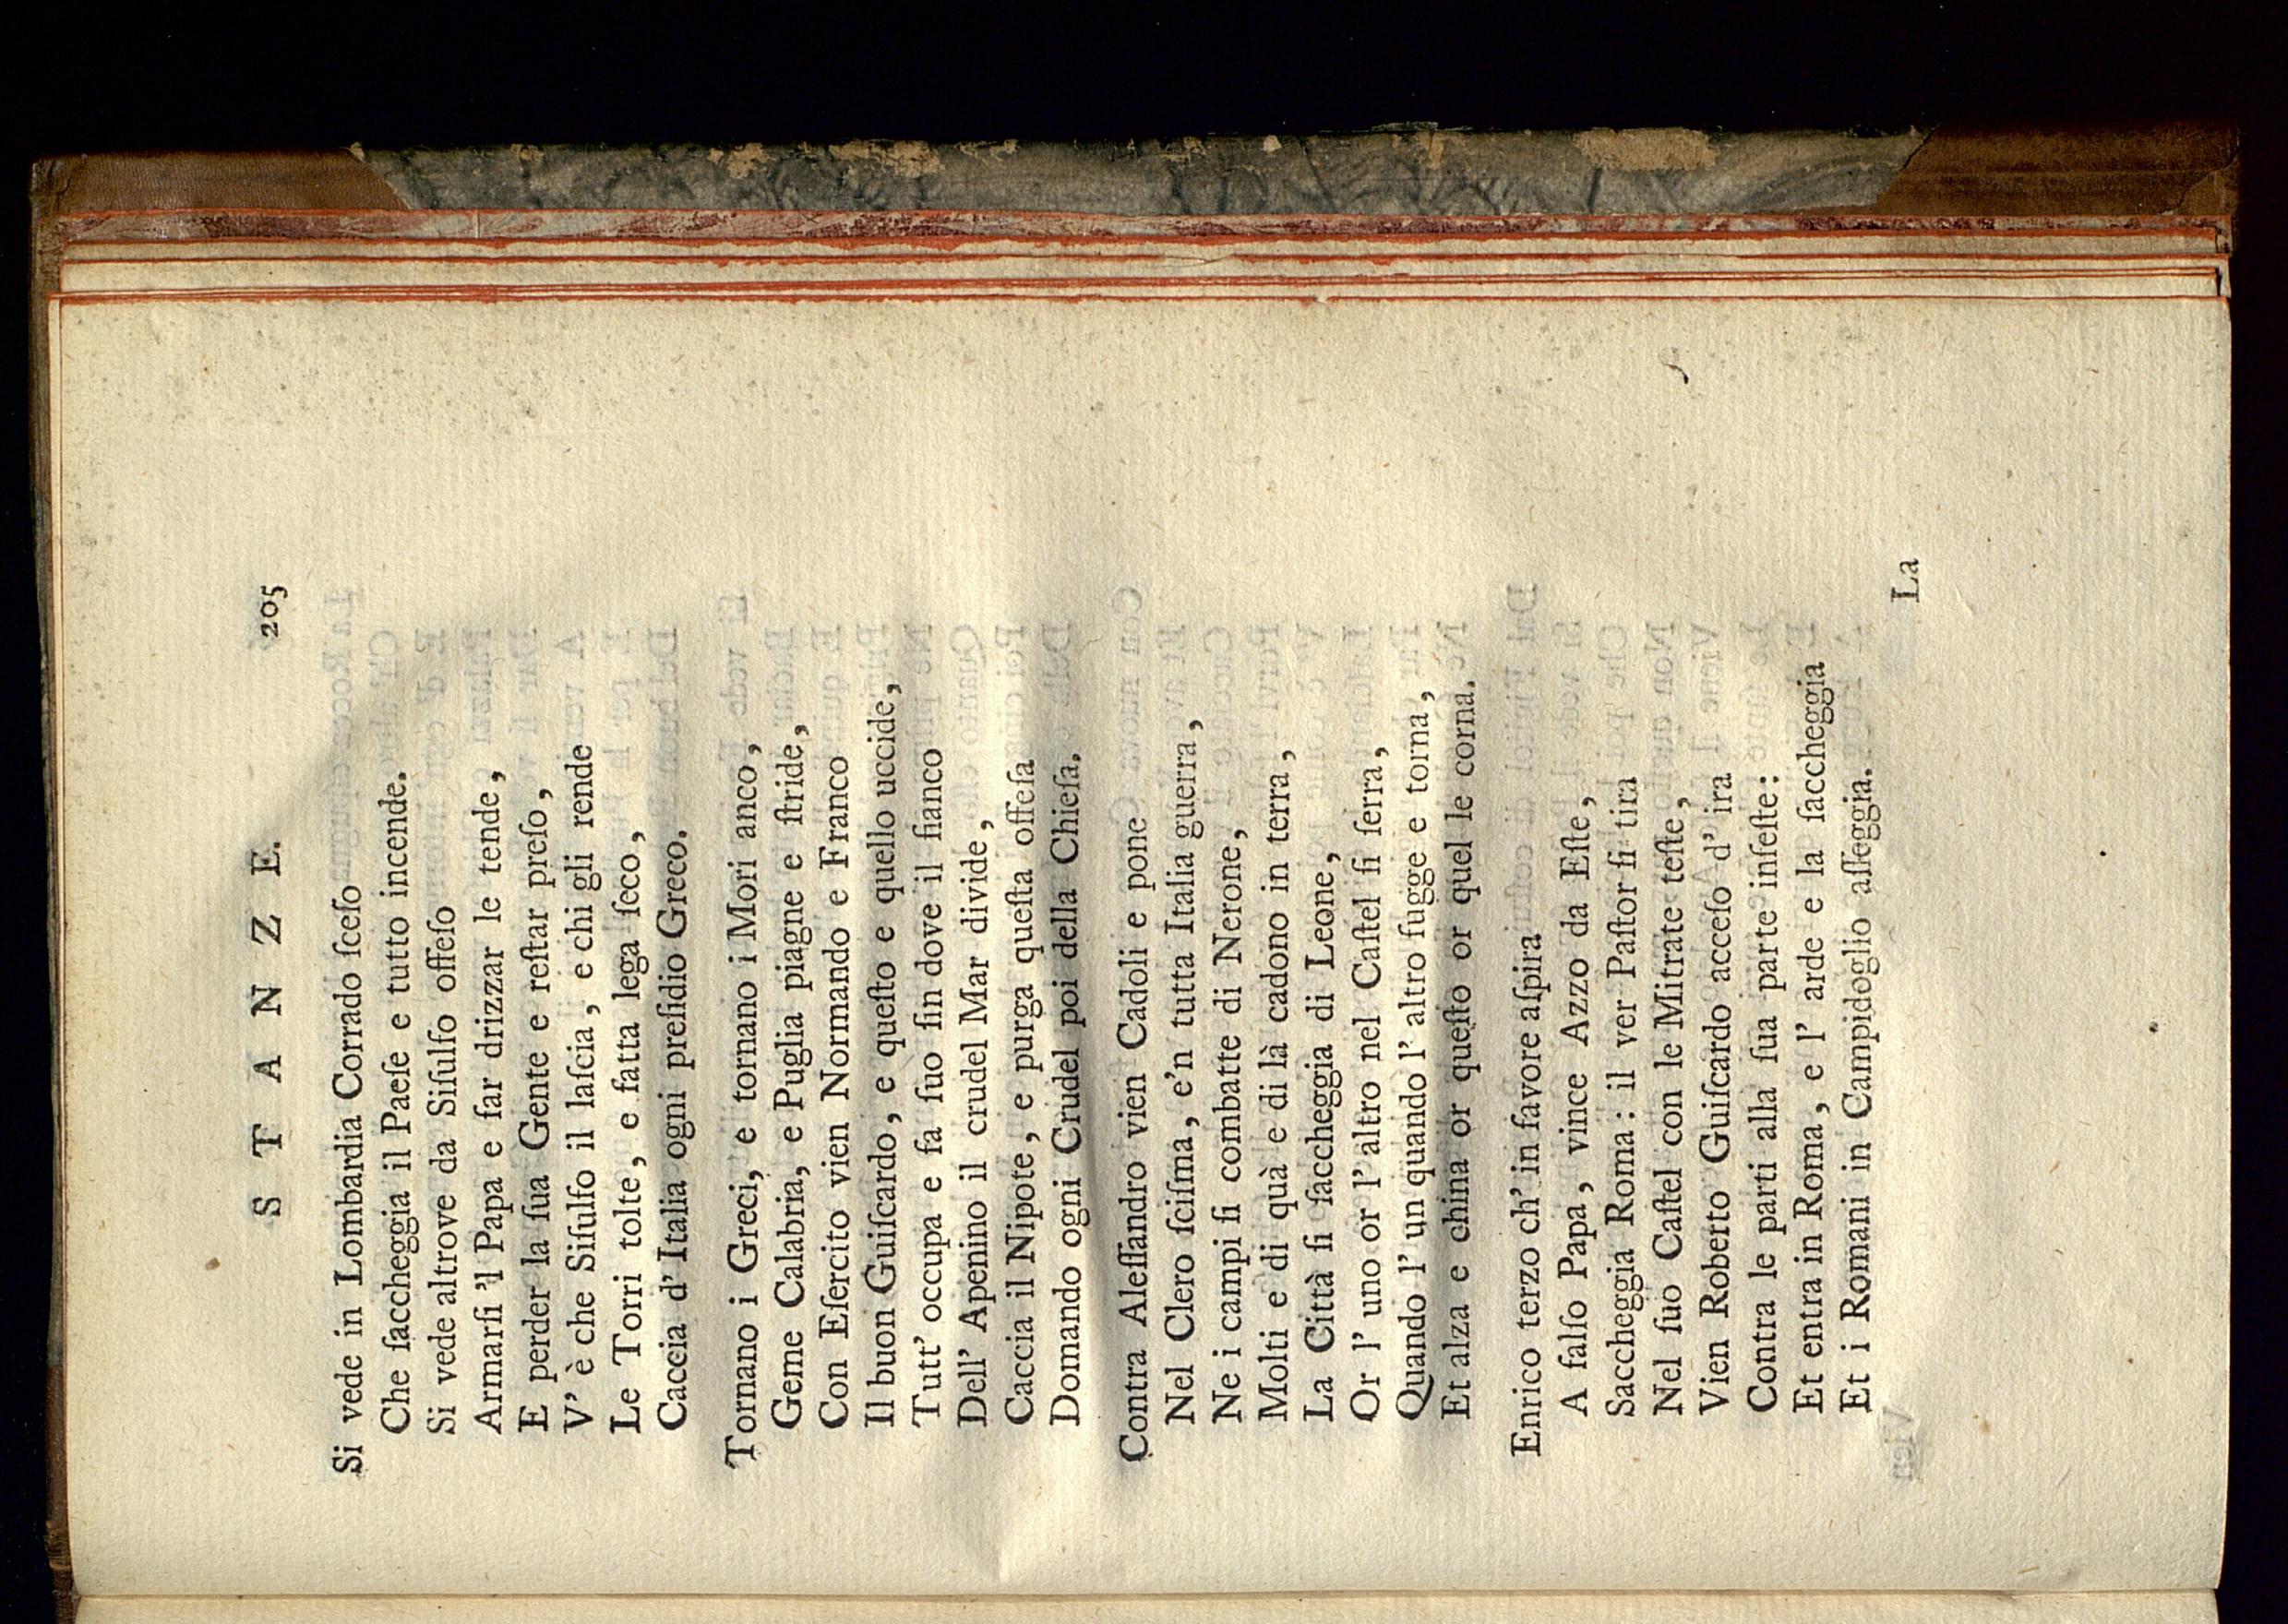 STANZE. 205
Si vede in Lombardia Corrado ſceſo
Che ſaccheggia il Paeſe e tutto incende.
Si vede altrove da Siſulfo offeſo
Armarſi 'l Papa e far drizzar le tende,
E perder la ſua Gente e reſtar preſo,
V' è che Siſulfo il laſcia, e chi gli rende
Le Torri tolte, e fatta lega ſeco,
Caccia d' Italia ogni preſidio Greco.
Tornano i Greci, e tornano i Mori anco,
Geme Calabria, e Puglia piagne e ſtride,
Con Eſercito vien Normando e Franco
Il buon Guiſcardo, e queſto e quello uccide,
Tutt' occupa e fa ſuo ſin dove il fianco
Dell' Apenino il crudel Mar divide,
Caccia il Nipote, e purga queſta offeſa
Domando ogni Crudel poi della Chieſa.
Contra Aleſſandro vien Cadoli e pone
Nel Clero ſciſma, e'n tutta Italia guerra,
Ne i campi ſi combatte di Nerone,
Molti e di quà e di là cadono in terra,
La Città ſi ſaccheggia di Leone,
Or l' uno or l' altro nel Caſtel ſi ſerra,
Quando l' un quando l' altro fugge e torna,
Et alza e china or queſto or quel le corna.
Enrico terzo ch' in favore aſpira
A falſo Papa, vince Azzo da Eſte,
Saccheggia Roma: il ver Paſtor ſi tira
Nel ſuo Caſtel con le Mitrate teſte,
Vien Roberto Guiſcardo acceſo d' ira
Contra le parti alla ſua parte infeſte:
Et entra in Roma, e l' arde e la ſaccheggia
Et i Romani in Campidoglio aſſeggia.
La